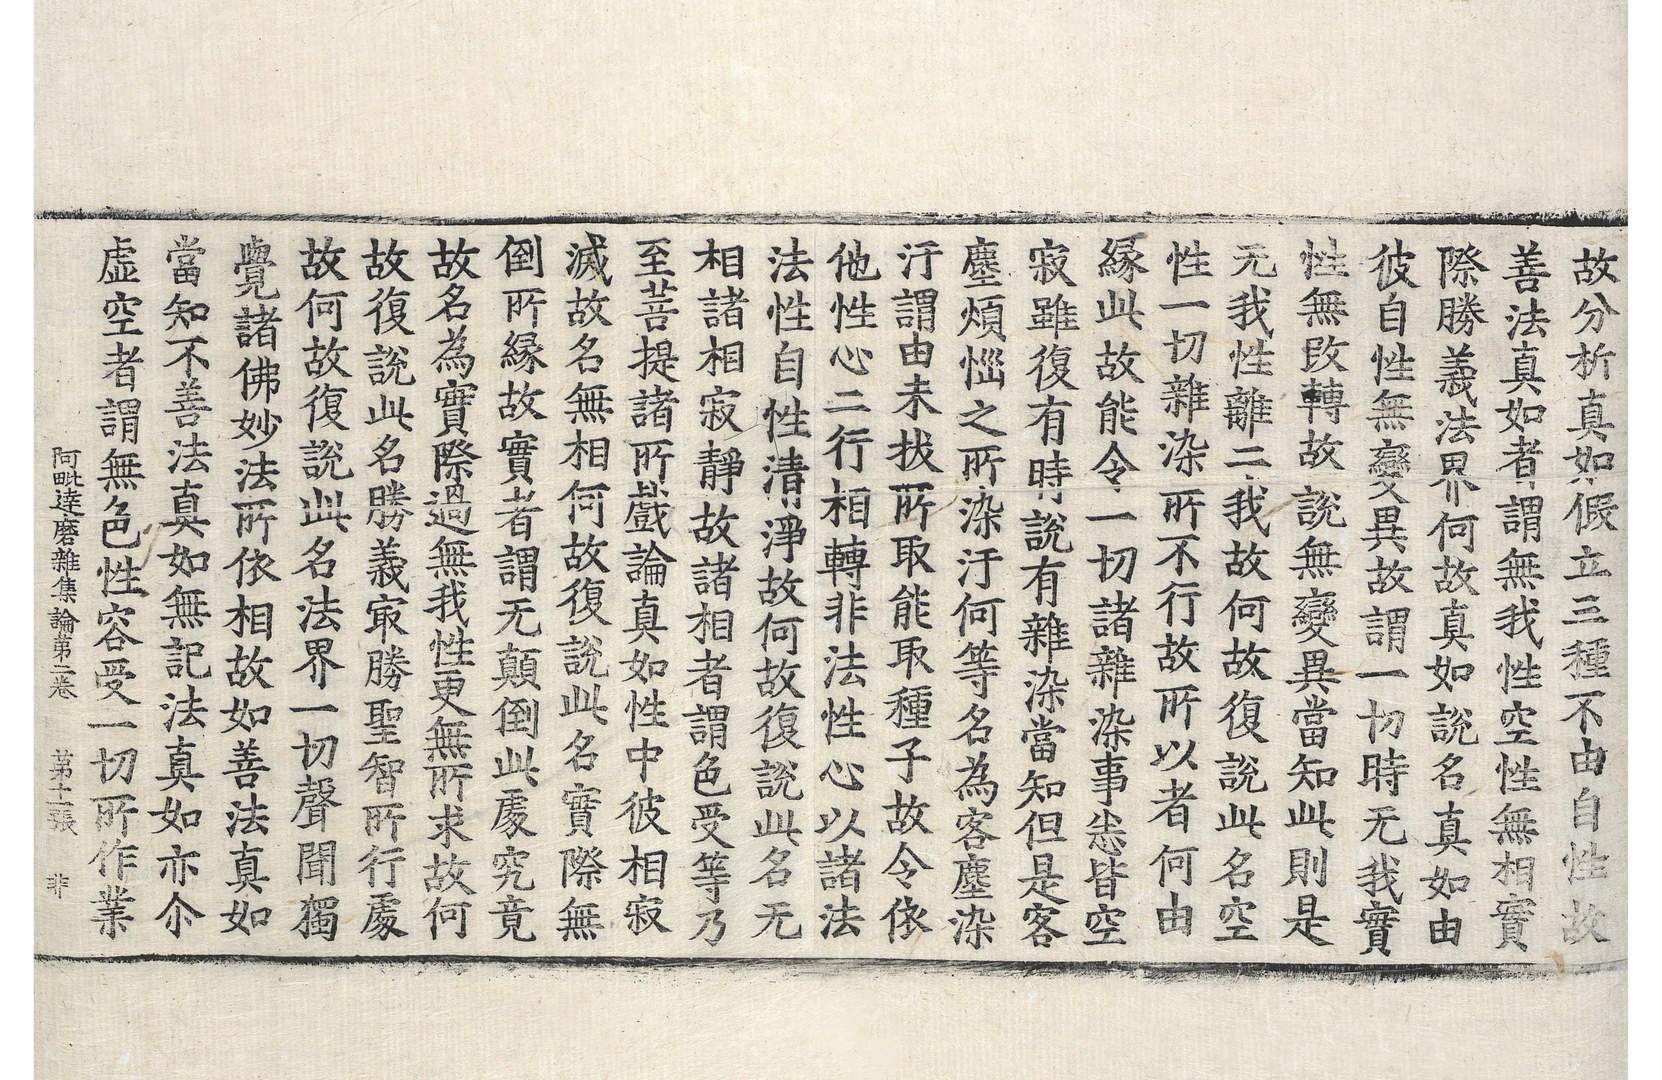 故分析真如假立三種不由自性故
善法真如者謂無我性空性無相實
際勝義法界何故真如說名真如由
彼自性無變異故謂一切時无我實
性無改轉故說無變異當知此則是
无我性離二我故何故復說此名空
性一切雜染所不行故所以者何由
緣此故能令一切諸雜染事悉皆空
寂雖復有時說有雜染當知但是客
塵煩惱之所染汙何等名為客塵染
汙謂由未拔所取能取種子故令依
他性心二行相轉非法性心以諸法
法性自性清淨故何故復說此名无
相諸相寂靜故諸相者謂色受等乃
至菩提諸所戲論真如性中彼相寂
滅故名無相何故復說此名實際無
倒所緣故實者謂无顛倒此處究竟
故名為實際過無我性更無所求故何
故復說此名勝義㝡勝聖智所行處
故何故復說此名法界一切聲聞獨
覺諸佛妙法所依相故如善法真如
當知不善法真如無記法真如亦尒
虛空者謂無色性容受一切所作業
阿毗達磨雜集論第二卷 第十一張 非